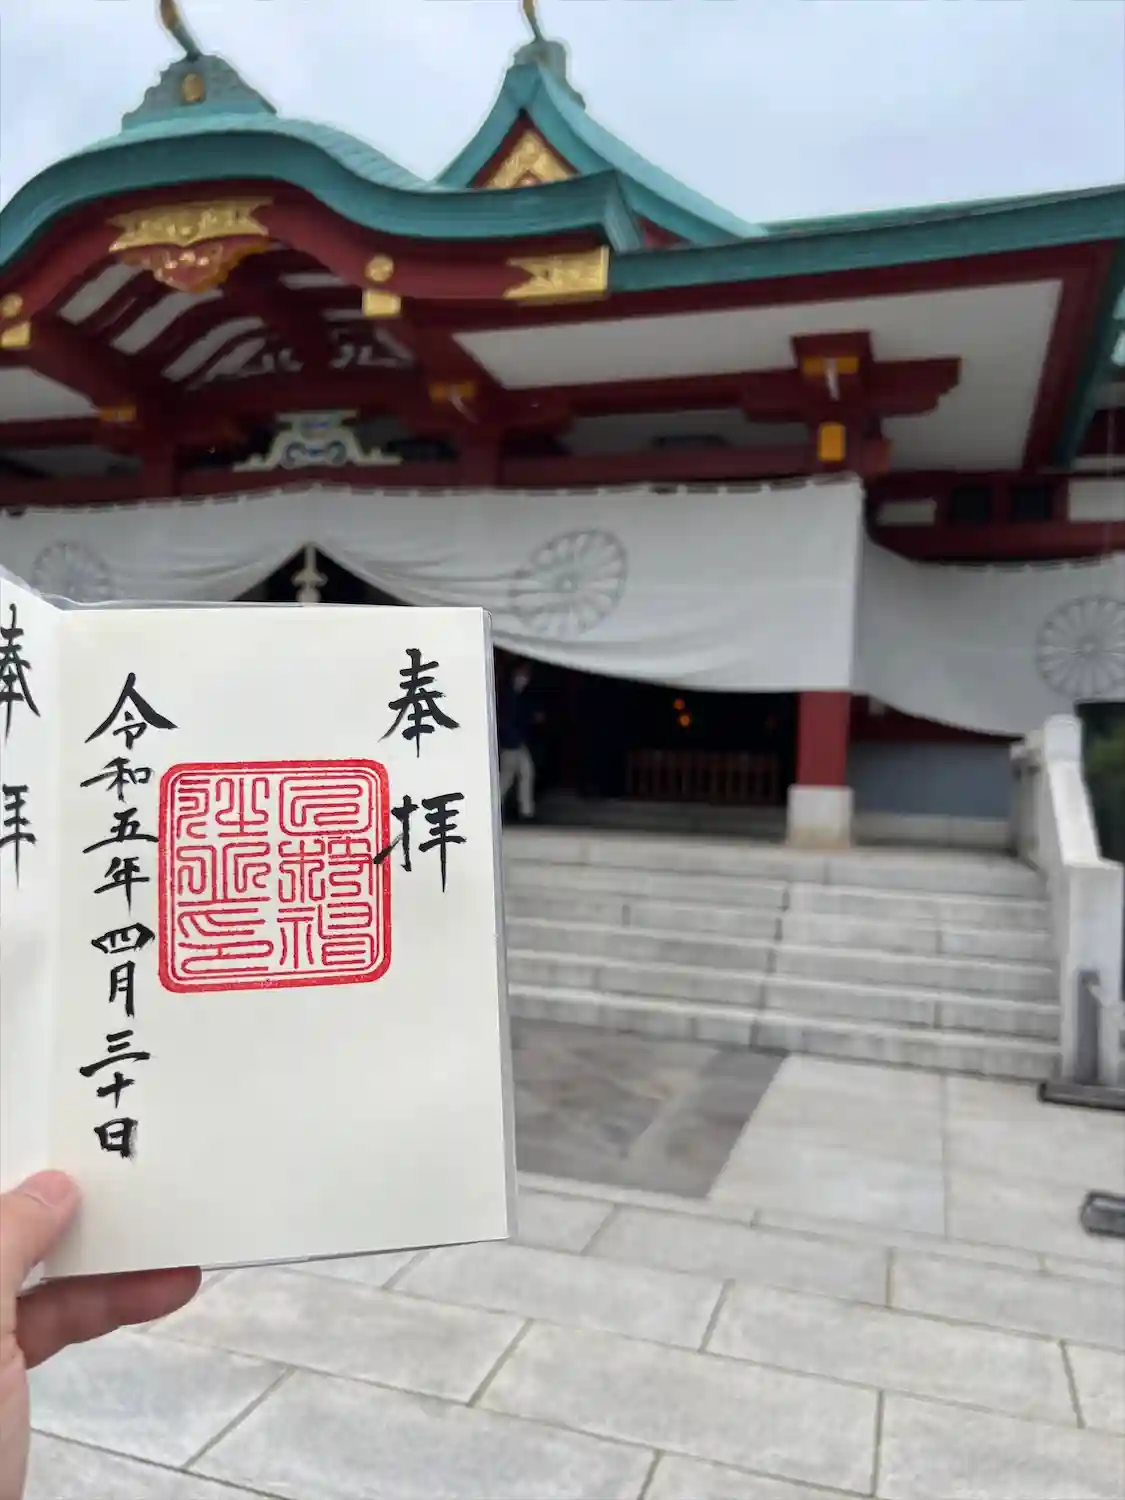 奉拝
日枝神社之印
令和五年四月三十日
奉拝